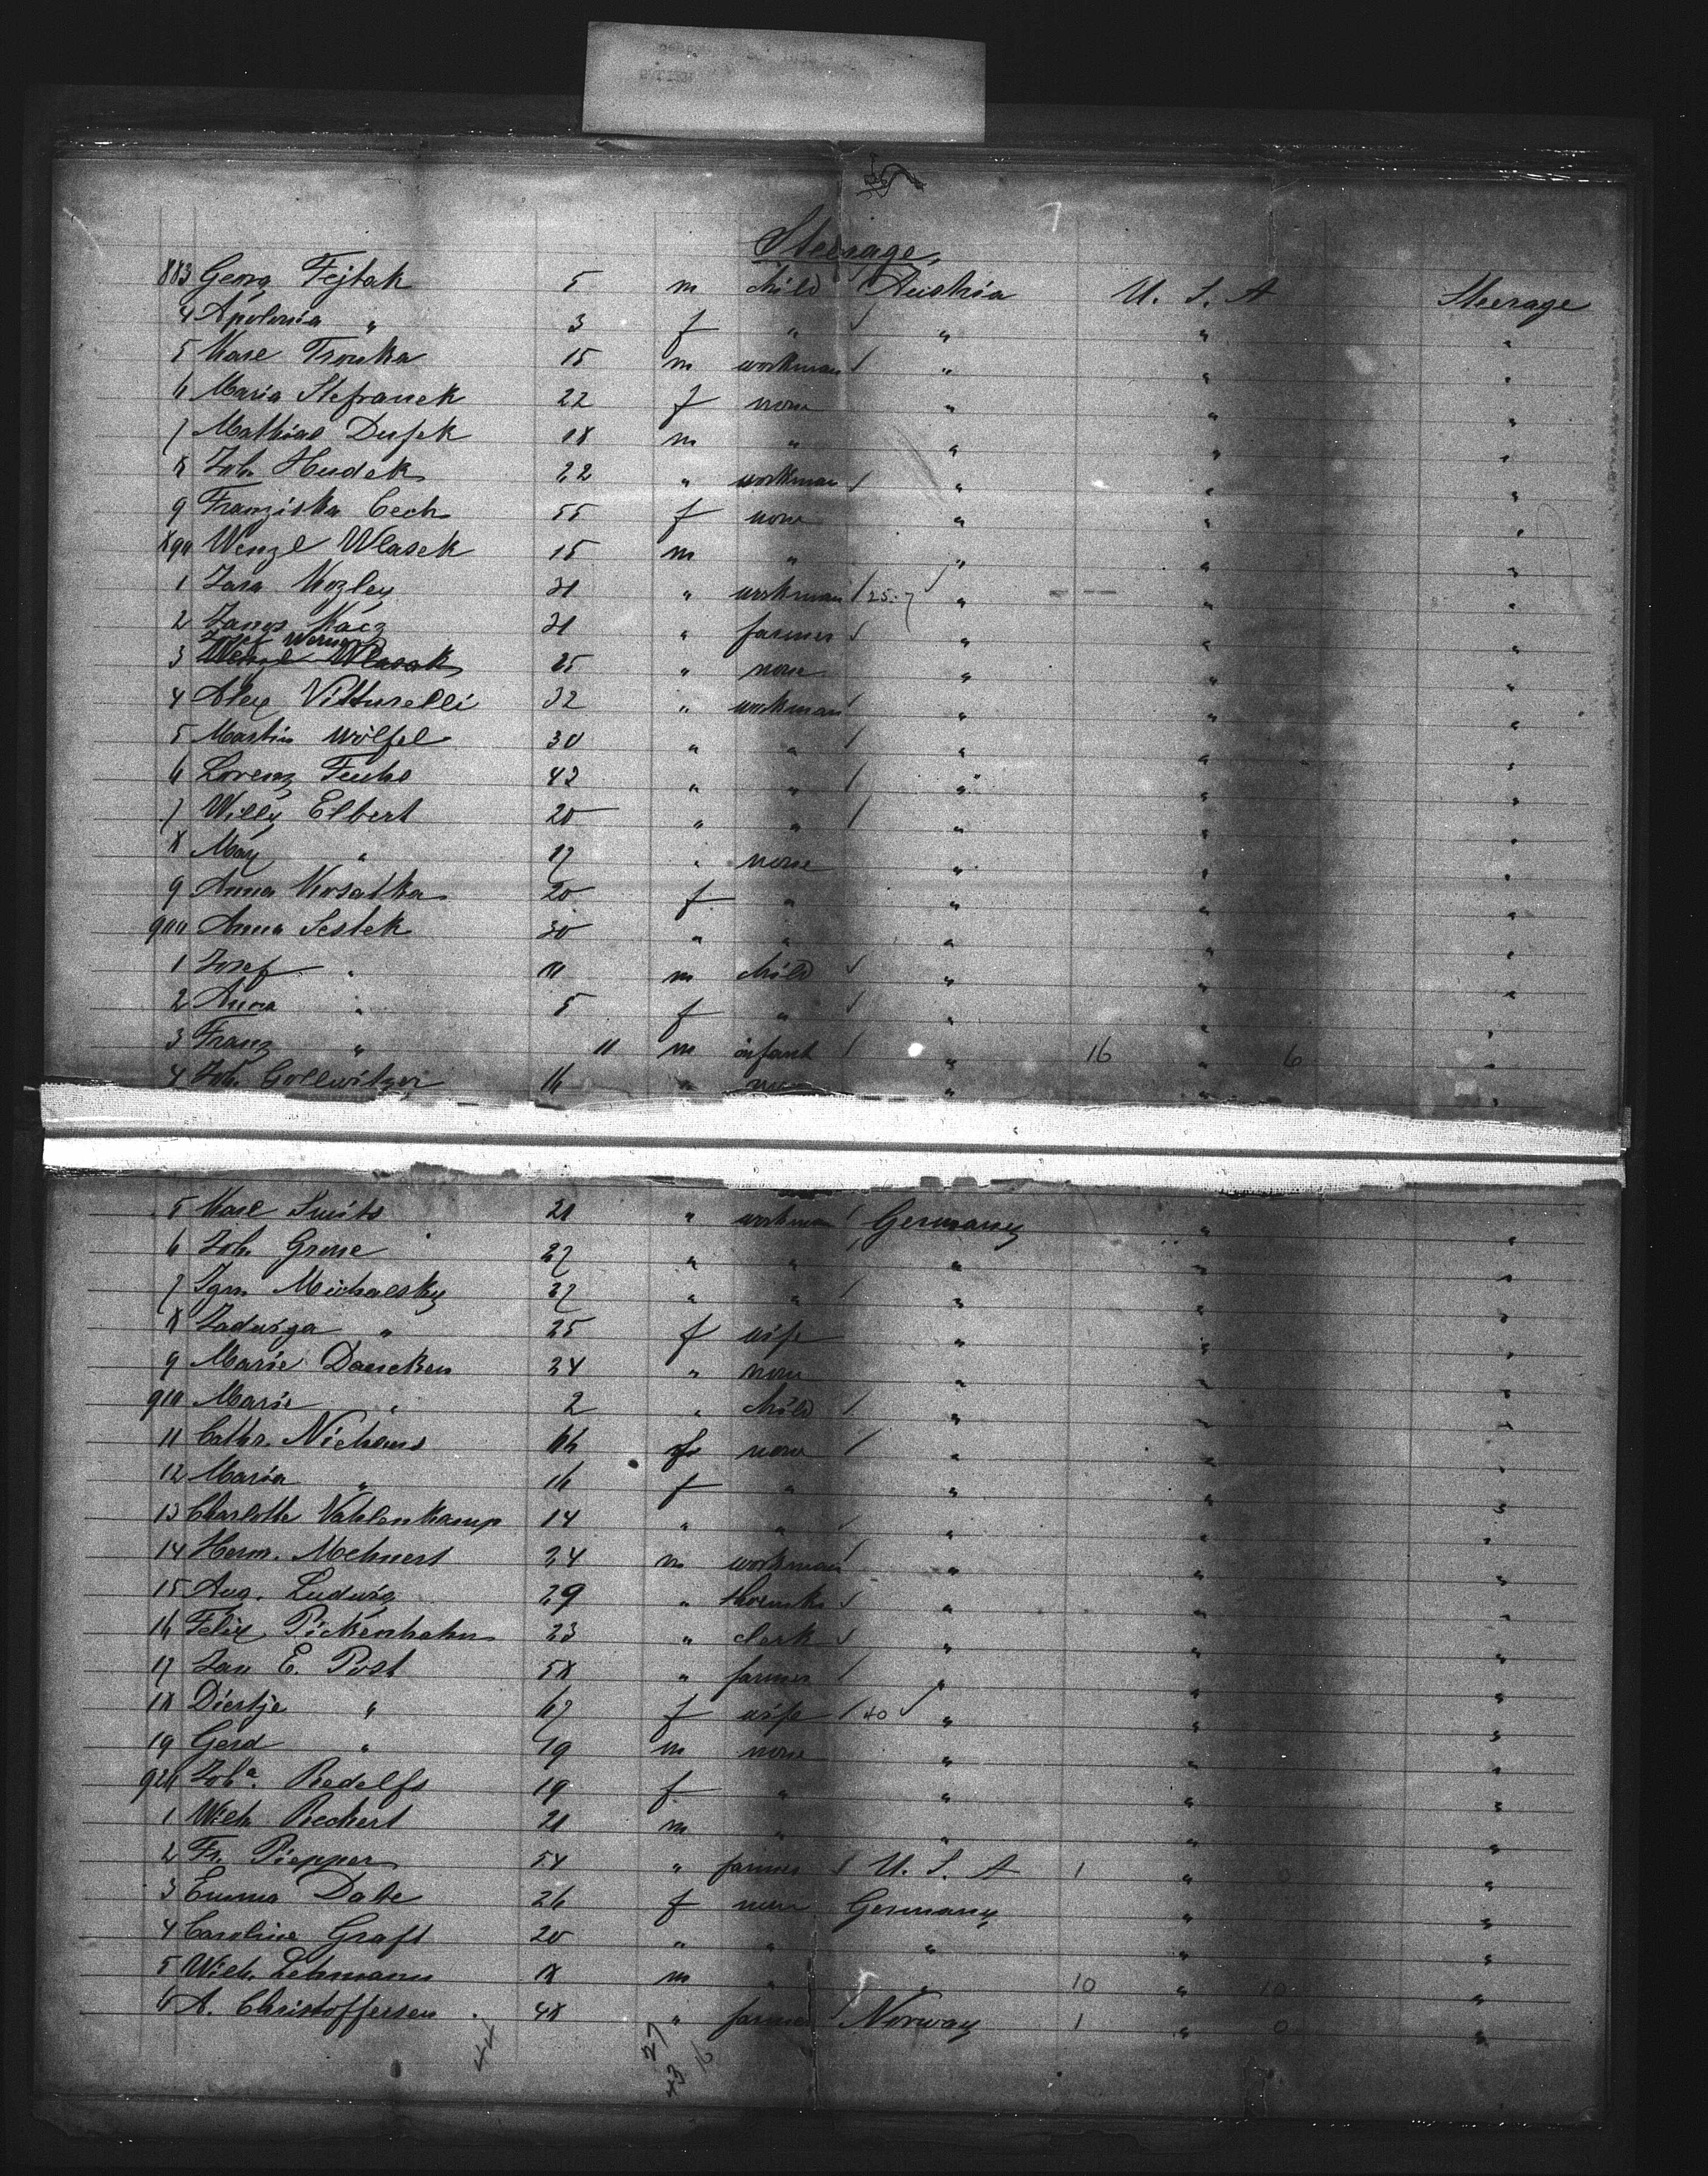 Steerage
883 Georg Fejtak 5 m child Austria U. S. A Steerage
4 Apolonia " 3 f " " " "
5 Karl Trouka 15 m workman " " "
6 Maria Stefranek 22 f none " " "
7 Mathias Dufek 18 m " " " "
8 Joh. Hudek 22 " workman " " "
9 Franziska Cech 55 f none " " "
890 Wenzl Wlasek 15 m " " " "
1 Jara Kozley 31 " workman 25.- " " "
2 Janos Kácz 31 " farmer " " "
3 Josef Werner 25 " none " " "
4 Alex Vitturelli 32 " workman " " "
5 Martin Wölfel 30 " " " " "
6 Lorenz Fuchs 42 " " " " "
7 Willy Elbert 20 " " " " "
8 Max " 17 " none " " "
9 Anna Kosatka 20 f " " " "
900 Anna Sestek 30 " " " " "
1 Josef " 11 m child " " "
2 Anna " 5 f " " " "
3 Franz " 11 m infant " 16 " 6 "
4 Joh. Gollwitzer 16 " none " " "
5 Karl Smits 21 " workman Germany " "
6 Joh. Grone 27 " " " " "
7 Ign. Michalsky 27 " " " " "
8 Jadwiga " 25 f wife " " "
9 Marie Daucken 24 " none " " "
910 Marie " 2 " child " " "
11 Cathr. Niehaus f none " " "
12 Maria " 16 f " " " "
13 Charlotte Vahlenkamp 14 " " " " "
14 Herm. Mehnert 24 m workman " " "
15 Aug. Ludwig 29 " shoemkr " " "
16 Felix Pickenhahn 23 " clerk " " "
17 Jan E. Post 58 " farmer " " "
18 Diertje " 67 f wife 40 " " "
19 Gerd " 19 m none " " "
920 Joha. Redelfs 19 f " " " "
1 Wilh. Reckert 21 m " " " "
2 Fr. Piepper 54 " farmer U. S. A 1 " 0 "
3 Emma Date 26 f none Germany " "
4 Caroline Graft 20 " " " " "
5 Wilh. Lehmann 18 m " " 10 " 10 "
6 A. Christoffersen 48 " farmer Norway 1 " 0 "
44 27 16
43